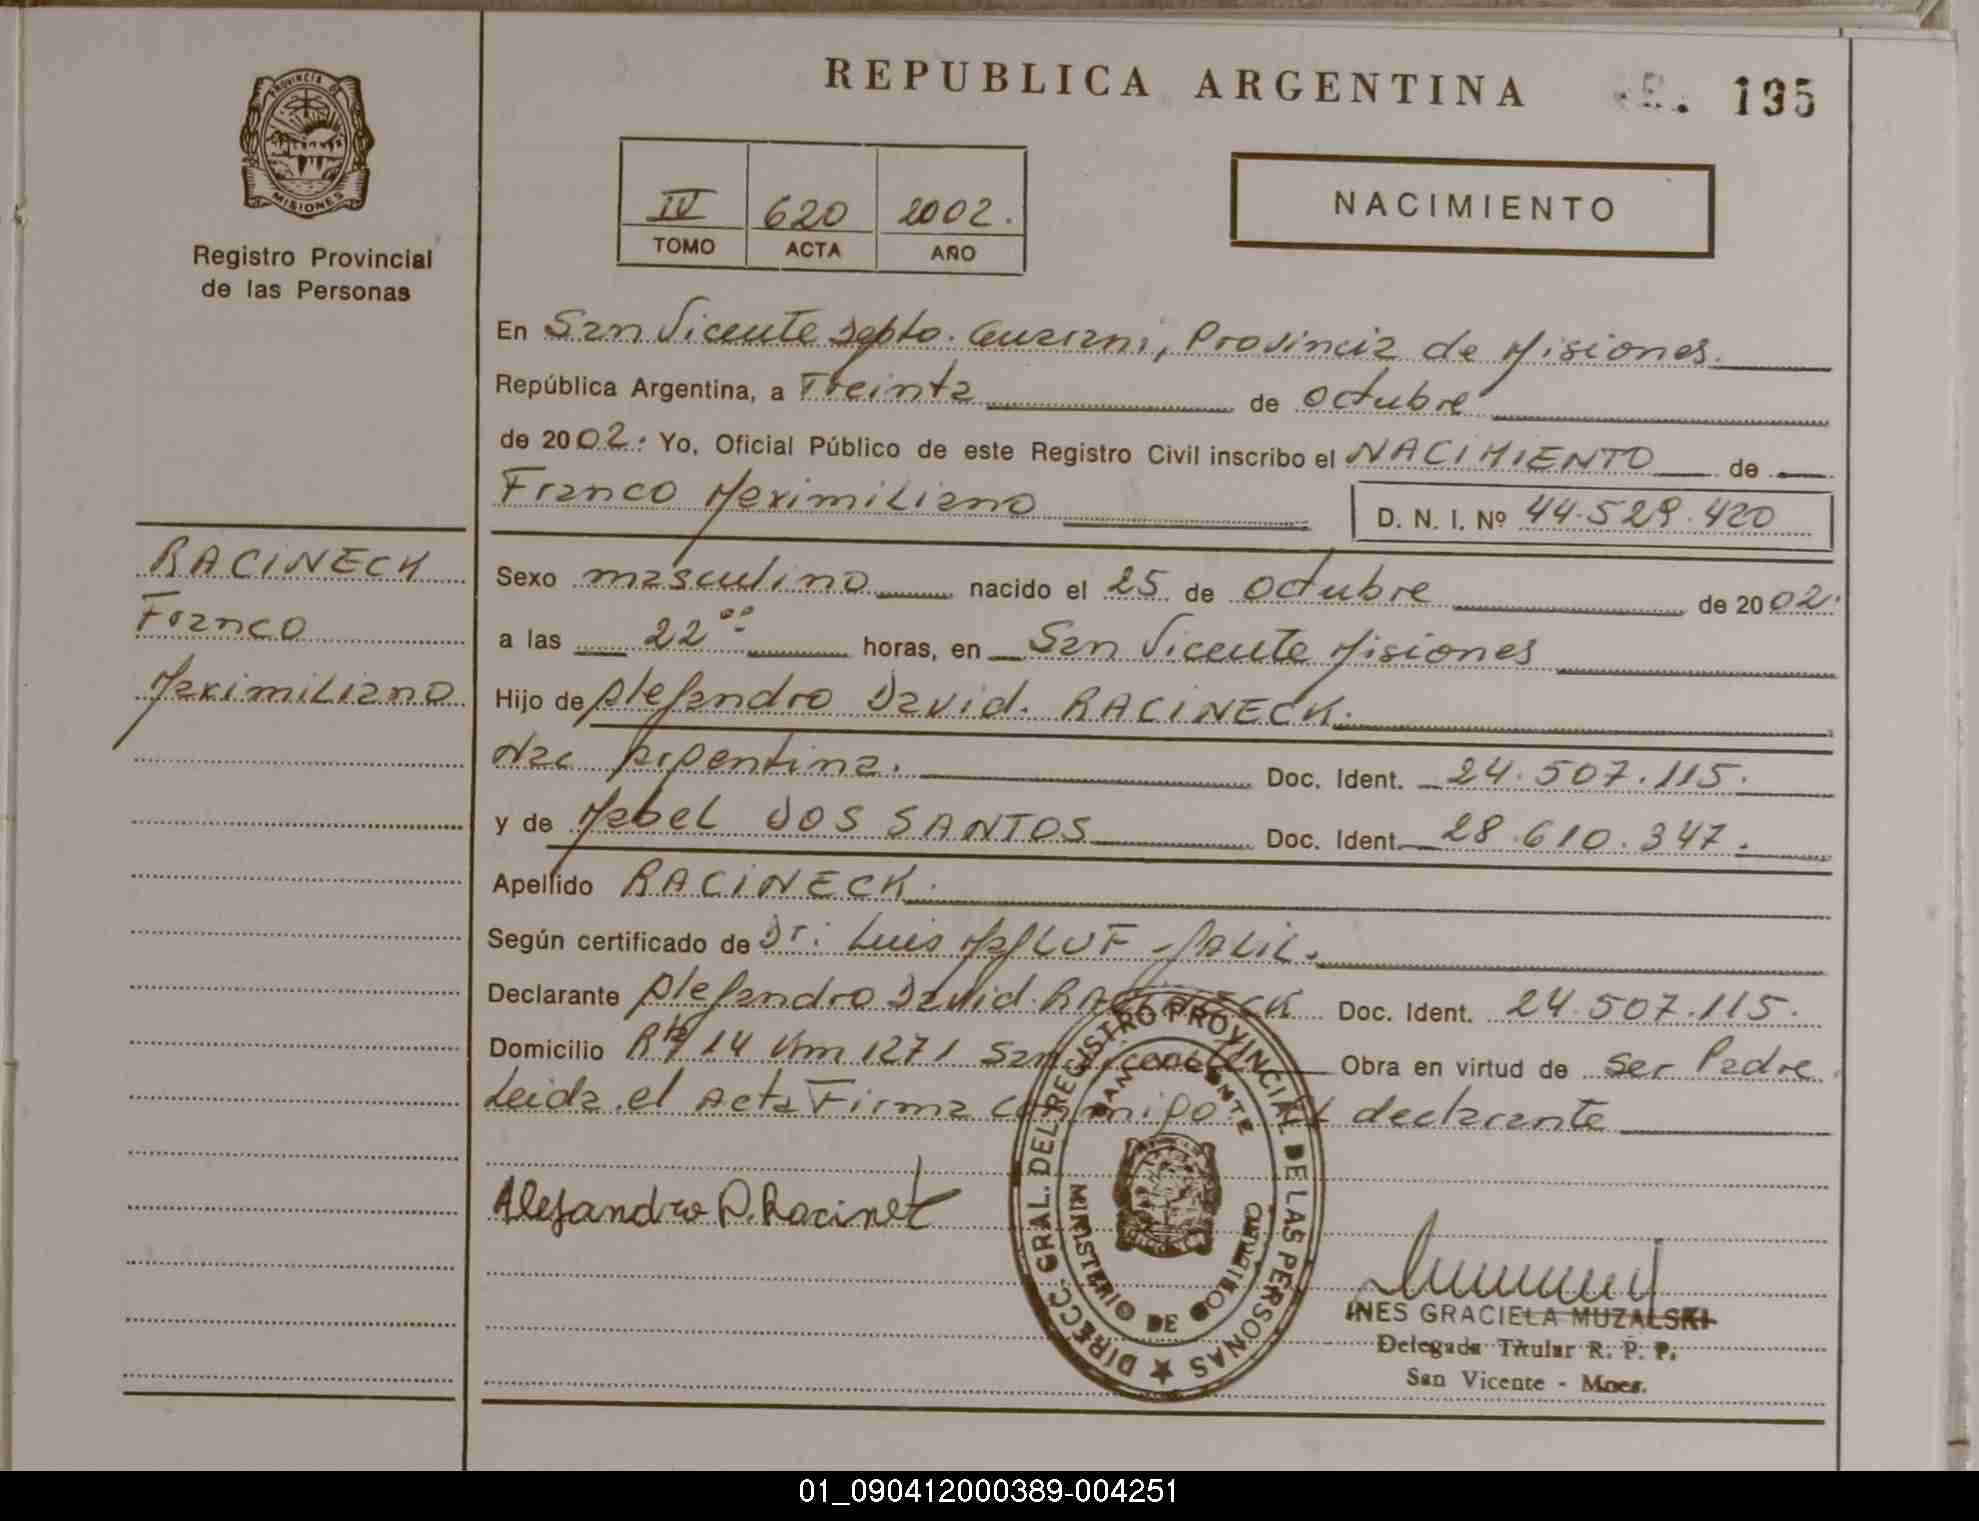 REPUBLICA ARGENTINA
195
PROVINCIA DE
MISIONES
Registro Provincial
de las Personas
IV 620 2002.
TOMO ACTA AÑO
NACIMIENTO
En San Vicente Depto. Guarani, Provincia de Misiones.
República Argentina, a Treinta de octubre
de 2002. Yo, Oficial Público de este Registro Civil inscribo el NACIMIENTO de
Franco Maximiliano
D. N. I. Nº 44.529.420
RACINECK
Franco
Maximiliano
Sexo masculino nacido el 25 de octubre de 2002.
a las 22 00 horas, en San Vicente Misiones
Hijo de Alejandro David. RACINECK.
Nac Argentina. Doc. Ident. 24.507.115.
y de Mabel DOS SANTOS Doc. Ident. 28.610.347.
Apellido RACINECK.
Según certificado de Dr. Luis MALUF JALIL.
Declarante Alejandro David. RACINECK Doc. Ident. 24.507.115.
Domicilio Rta 14 Km 1271 San Vicente Obra en virtud de ser Padre
Leida el Acta Firma conmigo El declarante
Alejandro D. Racinet
DIRECC. GRAL. DEL REGISTRO PROVINCIAL DE LAS PERSONAS
SAN VICENTE
MINISTERIO DE GOBIERNO
INES GRACIELA MUZALSKI
Delegada Titular R. P. P.
San Vicente - Mnes.
01_090412000389-004251